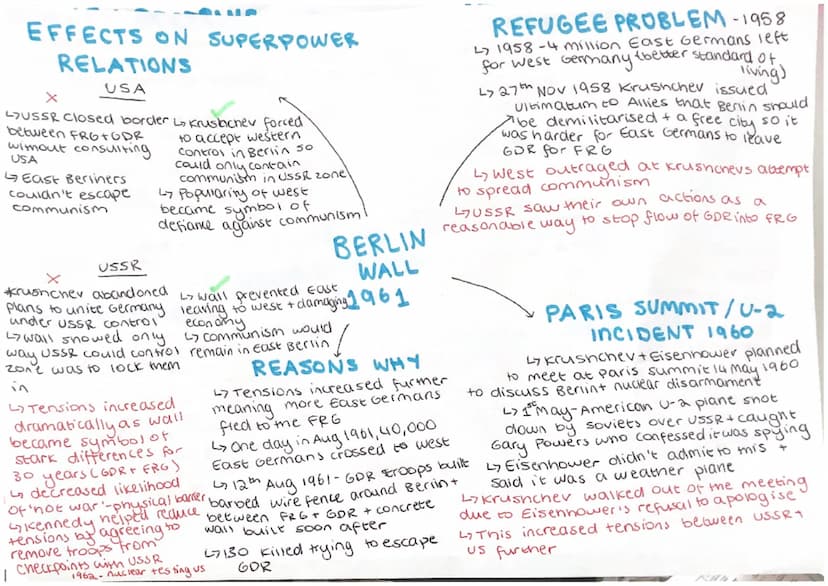 EFFECTS ON SUPERPOWER
RELATIONS
USA
↳USSR closed border
between FRG+GDR
without consulting
USA
↳ East Berliners
couldn't escape
communism
↳ Krushchev forced
to accept western
control in Berlin so
could only contain
communism in USSR zone
↳ Popularity of west
became symbol of
defiance against communism
USSR
*Krushchev abandoned
plans to unite Germany
under USSR control
↳ wall showed only
way USSR could control
zone was to lock them
in
↳ wall prevented East
leaving to west + damaging
economy
↳ communism would
remain in East Berlin
↳ Tensions increased
dramatically as wall
became symbol of
stark differences for
30 years (GDR + FRG)
↳ decreased likelihood
of 'hot war' - physical barrier
↳ Kennedy helped reduce
tensions by agreeing to
remove troops from
checkpoints with USSR
1962 - nuclear testing US
BERLIN
WALL
1961
REASONS WHY
↳ Tensions increased further
meaning more East Germans
fled to the FRG
↳ One day in Aug 1961, 40,000
East Germans crossed to west
↳ 12th Aug 1961 - GDR troops built
barbed wire fence around Berlin +
between FRG + GDR + concrete
wall built soon after
↳ 130 killed trying to escape
GDR
REFUGEE PROBLEM - 1958
↳ 1958 - 4 million East Germans left
for West Germany (better standard of
living)
↳ 27th Nov 1958 Krushchev issued
ultimatum to Allies that Berlin should
be demilitarised + a free city so it
was harder for East Germans to leave
GDR for FRG
↳ West outraged at Krushchevs attempt
to spread communism
↳ USSR saw their own actions as a
reasonable way to stop flow of GDR into FRG
PARIS SUMMIT / U-2
INCIDENT 1960
↳ Krushchev + Eisenhower planned
to meet at Paris summit 14 May 1960
to discuss Berlin + nuclear disarmament
↳ 1st May - American U-2 plane shot
down by soviets over USSR + caught
Gary Powers who confessed it was spying
↳ Eisenhower didn't admit to this +
said it was a weather plane
↳ Krushchev walked out of the meeting
due to Eisenhower's refusal to apologise
↳ This increased tensions between USSR +
US further